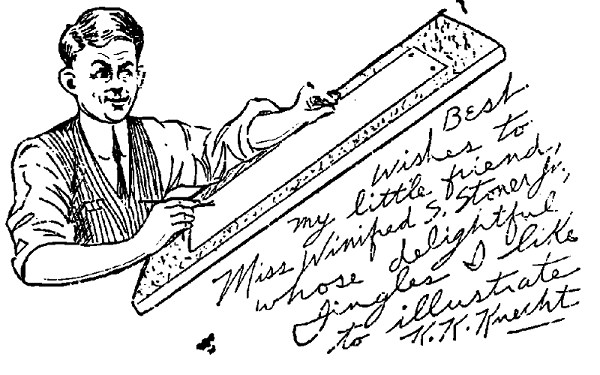 Best
wishes to
my little friend,
Miss Winifred S. Stoner Jr.,
whose delightful
Jingles I like
to illustrate
K.K. Knecht